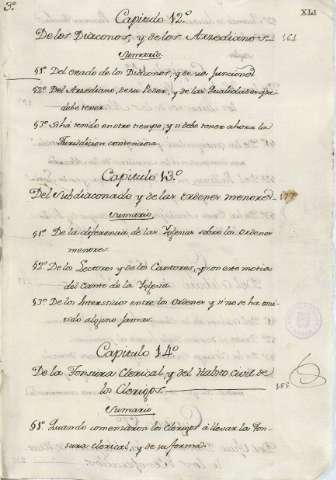 3º
XLI
Capitulo 12º
De los Diaconos, y de los Arzedianos 161
Sumario
§1º Del grado de los Diaconos, y de su funcion
§2º Del Arzediano, de su Poder, y de las qualidades que
debe tener
§3º Si há tenido en otro tiempo, y si debe tener ahora la
Jurisdicion contenciosa
Capitulo 13º
Del Subdiaconado y de las ordenes menores
Sumario
§1º De la diferencia de las Iglesias sobre los ordenes
menores
§2º De los Lectores y de los Cantores, y con este motivo
del Canto de la Yglesia
§3º De los Intersticios entre los Ordenes y si no se há omi
tido alguno jamas
Capitulo 14º
De la Tonsura Clerical, y del Habito Civil de
los Clerigos
Sumario
§1º Quando comenzaron los Clerigos á llevar la Ton
sura clerical, y de su forma